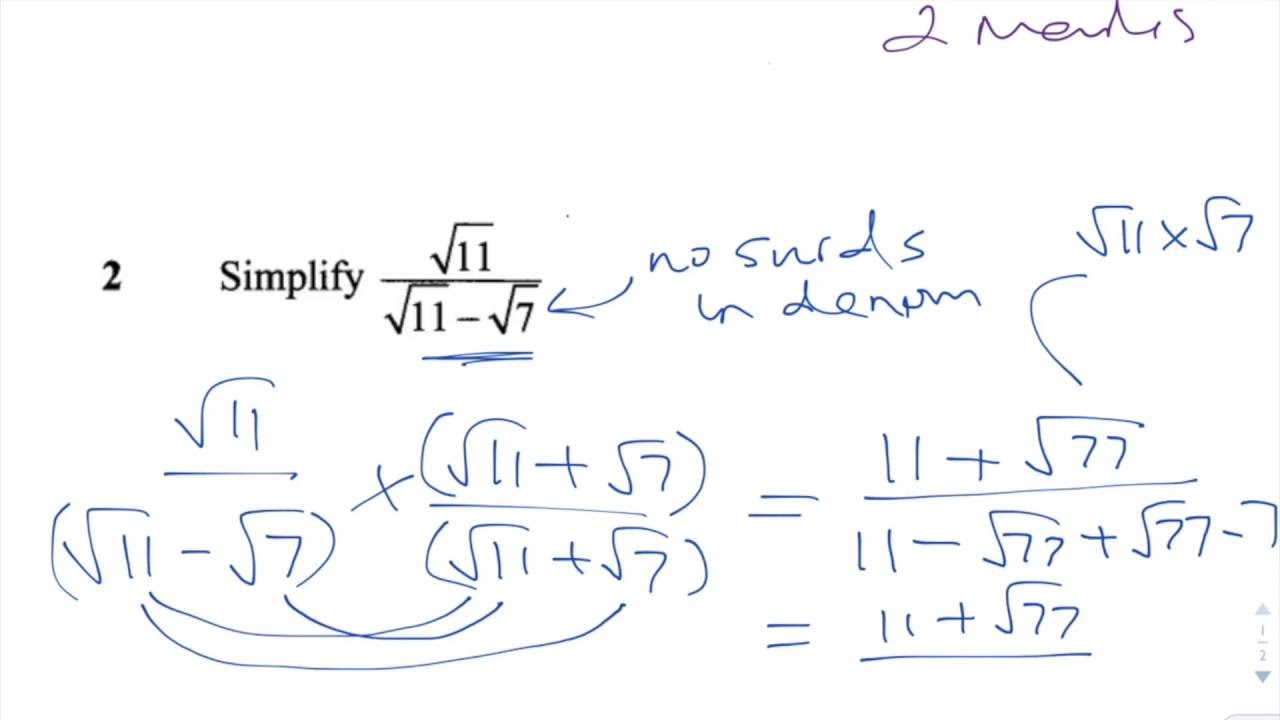 2 marks
2 Simplify √11 / (√11 − √7)
no surds
in denom
√11 × √7
√11 / (√11 − √7) × (√11 + √7) / (√11 + √7) = (11 + √77) / (11 − √77 + √77 − 7)
= 11 + √77
1
2